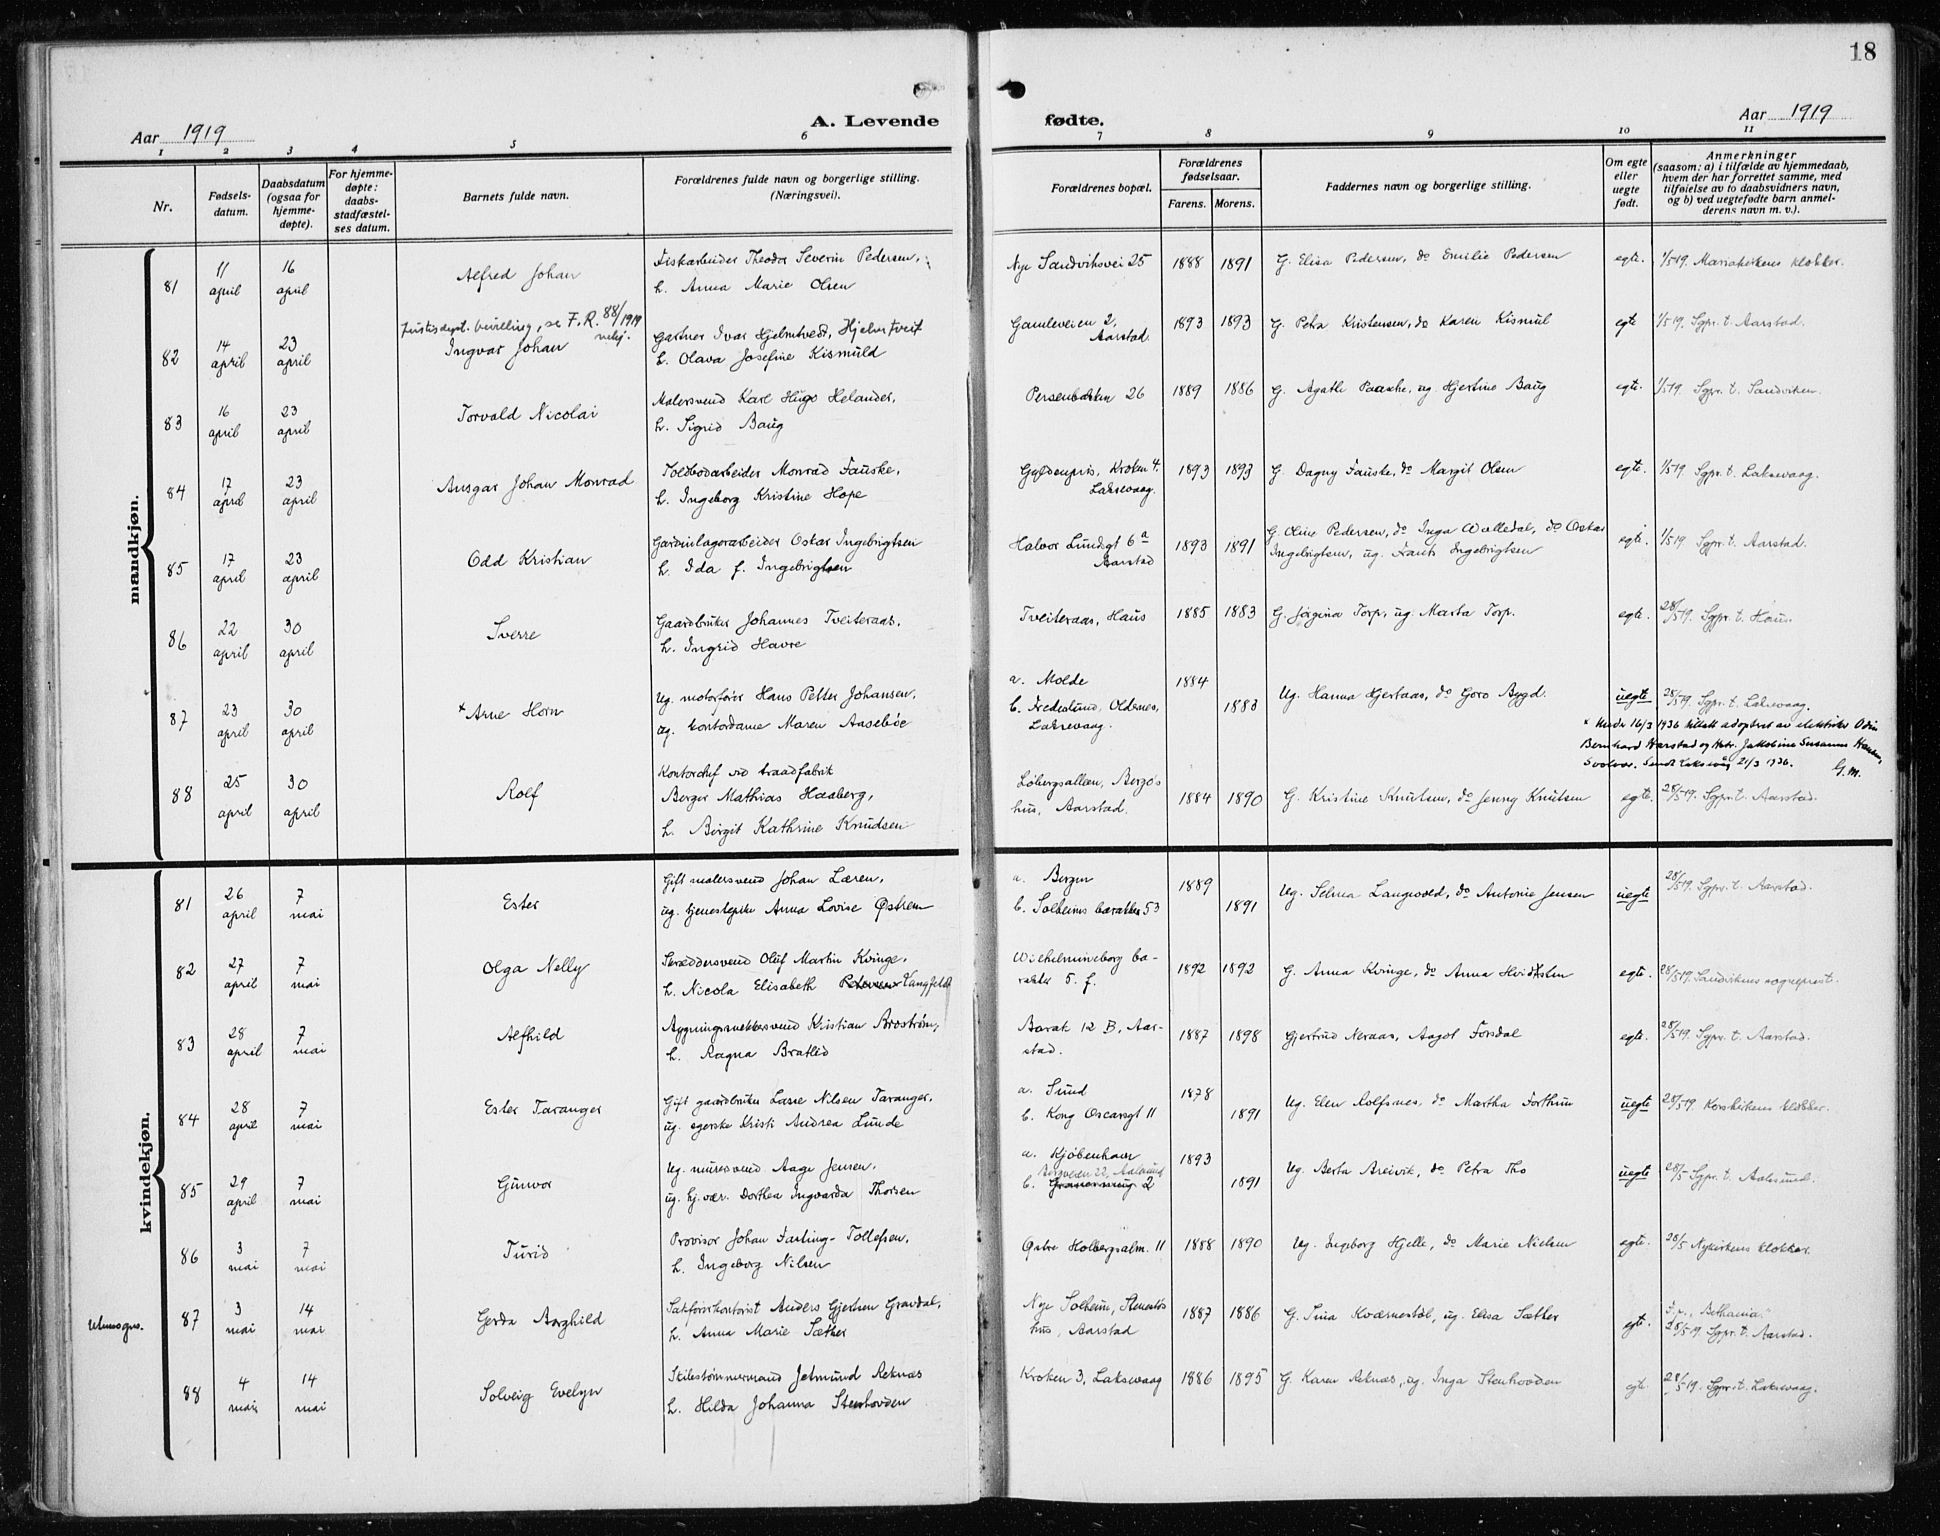 18
Aar 1919
A. Levende
fødte.
Aar 1919
1 2 3 4 5 6 7 8 9 10 11
Nr.
Fødsels-
datum.
Daabsdatum
(ogsaa for
hjemme-
døpte).
For hjemme-
døpte:
daabs-
stadfæstel-
ses datum.
Barnets fulde navn.
Forældrenes fulde navn og borgerlige stilling.
(Næringsvei).
Forældrenes bopæl.
Forældrenes
fødselsaar.
Farens. Morens.
Faddernes navn og borgerlige stilling.
Om egte
eller
uegte
født.
Anmerkninger
(saasom: a) i tilfælde av hjemmedaab,
hvem der har forrettet samme, med
tilføielse av to daabsvidners navn,
og b) ved uegtefødte barn anmel-
derens navn m. v.).
mandkjøn.
81 11 april 16 april Alfred Johan
Fiskarbeider Theodor Severin Pedersen,
h. Anna Marie Olsen
Nye Sandviksvei 25 1888 1891 G. Elisa Pedersen, do Emilie Pedersen egte. 1/5 19. Mariakirkens klokker.
Justisdept. bevilling, se F.R. 88/1919
82 14 april 23 april Ingvar Johan
Gartner Ivar Hjelmtvedt, Hjelmtveit
h. Olava Josefine Kismuld
Gamleveien 2, Aarstad. 1893 1893 G. Petra Kristensen, do Karen Kismul egte 1/5 19. Sgpr. t. Aarstad.
83 16 april 23 april Torvald Nicolai
Malersvend Karl Hugo Helander,
h. Sigrid Baug
Persenbakken 26 1889 1886 G. Agathe Paasche, ug. Hjertine Baug egte. 1/5 19. Sgpr. t. Sandviken.
84 17 april 23 april Ansgar Johan Monrad
Toldbodarbeider Monrad Fauske,
h. Ingeborg Kristine Hope
Gyldenpris, Kroken 4. Laksevaag. 1893 1893 G. Dagny Fauske, do Margit Olsen egte. 1/5 19. Sgpr. t. Laksevaag.
85 17 april 23 april Odd Kristian
Oskar Ingebrigtsen
h. Ida f. Ingebrigtsen
Halvor Lundsgt 6a Aarstad 1893 1891 G. Oline Pedersen, do Inga Walledal, do Oskar
Ingebrigtsen, ug. Ingebrigtsen egte. 1/5 19. Sgpr. t. Aarstad.
86 22 april 30 april Sverre
Gaardbruker Johannes Tveiteraas,
h. Ingrid Havre
Tveiteraas, Haus 1885 1883 G. Jørgina Torp, ug. Marta Torp. egte. 28/5 19. Sgpr. t. Haus.
87 23 april 30 april × Arne Horn
Ug. motorfører Hans Petter Johansen,
ug. kontordame Maren Aasebøe
a. Molde 1884
b. Fredeslund, Oldernes, Laksevaag. 1883
Ug. Hanna Hjertaas, do Goro Bygd. uegte 28/5 19. Sgpr. t. Laksevaag.
× 16/3 1936 adoptert av elektriker Odin
Bernhard Harstad og Hstr. Jakobine Susanna Hansen,
Svolvær. Sendt Laksevåg 21/3 1936. G.M.
88 25 april 30 april Rolf
Kontorchef ved traadfabrik
Berger Mathias Haaberg,
h. Birgit Kathrine Knudsen
Løbergsalleen, Bergos
hus, Aarstad. 1884 1890 G. Kristine Knutsen, do Jenny Knutsen egte. 28/5 19. Sgpr. t. Aarstad.
kvindekjøn.
81 26 april 7 mai Ester
Gift malersvend Johan Læren,
ug. tjenestepike Anna Lovise Østrem
a. Bergen 1889
b. Solheims barakker 53 1891
Ug. Selma Langvold, do Antonie Jensen uegte 28/5 19. Sgpr. t. Aarstad.
82 27 april 7 mai Olga Nelly
Skræddersvend Oluf Martin Kvinge,
h. Nicola Elisabeth Langfeldt
Wilhelmineborg ba-
rakker 5. f. 1892 1892 G. Anna Kvinge, do Anna Hvidsten egte. 28/5 19. Sandvikens sogneprest.
83 28 april 7 mai Alfhild
Bygningssnekkersvend Kristian Brostrøm,
h. Ragna Bratlid
Barak 12 B, Aar-
stad. 1887 1898 Gjertrud Neraas, Aagot Forsdal egte. 28/5 19. Sgpr. t. Aarstad.
84 28 april 7 mai Ester Taranger
Gift gaardbruker Lasse Nilsen Taranger,
ug. Kristi Andrea Lunde
a. Sund 1878
b. Kong Oscarsgt 11 1891
Ug. Elen Rolfsnes, do Martha Forthun uegte 28/5 19. Korskirkens klokker.
85 29 april 7 mai Gunvor
Ug. murersvend Aage Jensen,
ug. hj.vær. Dorthea Ingvarda Thorsen
a. Kjøbenhavn 1893
22, Aalesund
b. 2 1891
Ug. Berta Breivik, do Petra Tho uegte 28/5 Sgpr. t. Aalesund.
86 3 mai 7 mai Turid
Provisor Johan Fasting-Tollefsen,
h. Ingeborg Nilsen
Østre Holbergsalm. 11 1888 1890 Ug. Ingeborg Hjelle, do Marie Nielsen egte. 28/5 Nykirkens klokker.
Utensogns. 87 3 mai 14 mai Gerda Borghild
Sakførerkontorist Anders Gjertsen Gravdal,
h. Anna Marie Sæther
Nye Solheim, Stenersøs
hus, Aarstad 1887 1886 G. Sina Kværnestøl, ug. Elisa Sæther egte. F. p. "Bethania".
28/5 19. Sgpr. t. Aarstad.
88 4 mai 14 mai Solveig Evelyn
Skibstømmermand Jetmund Reknæs
h. Hilda Johanna Stenhovden
Kroken 3, Laksevaag 1886 1895 G. Karen Reknæs, ug. Inga Stenhovden egte. 28/5 19. Sgpr. t. Laksevaag.